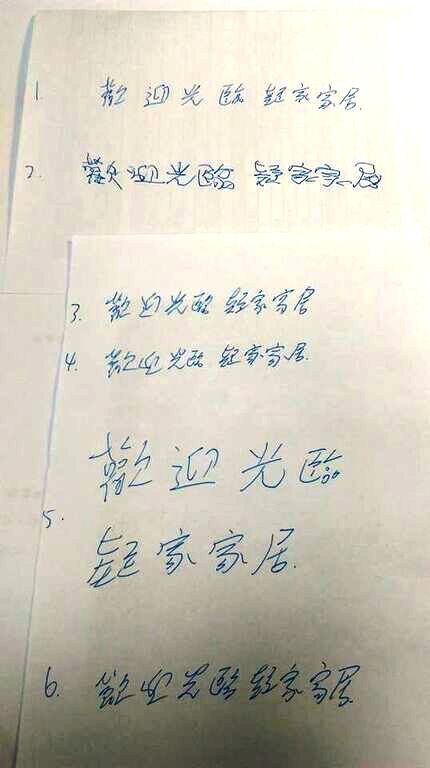 1. 歡迎光臨 起家家居.
2. 歡迎光臨 起家家居
3. 歡迎光臨 起家家居
4. 歡迎光臨 起家家居.
歡迎光臨
5.
起家家居.
6. 歡迎光臨 起家家居.